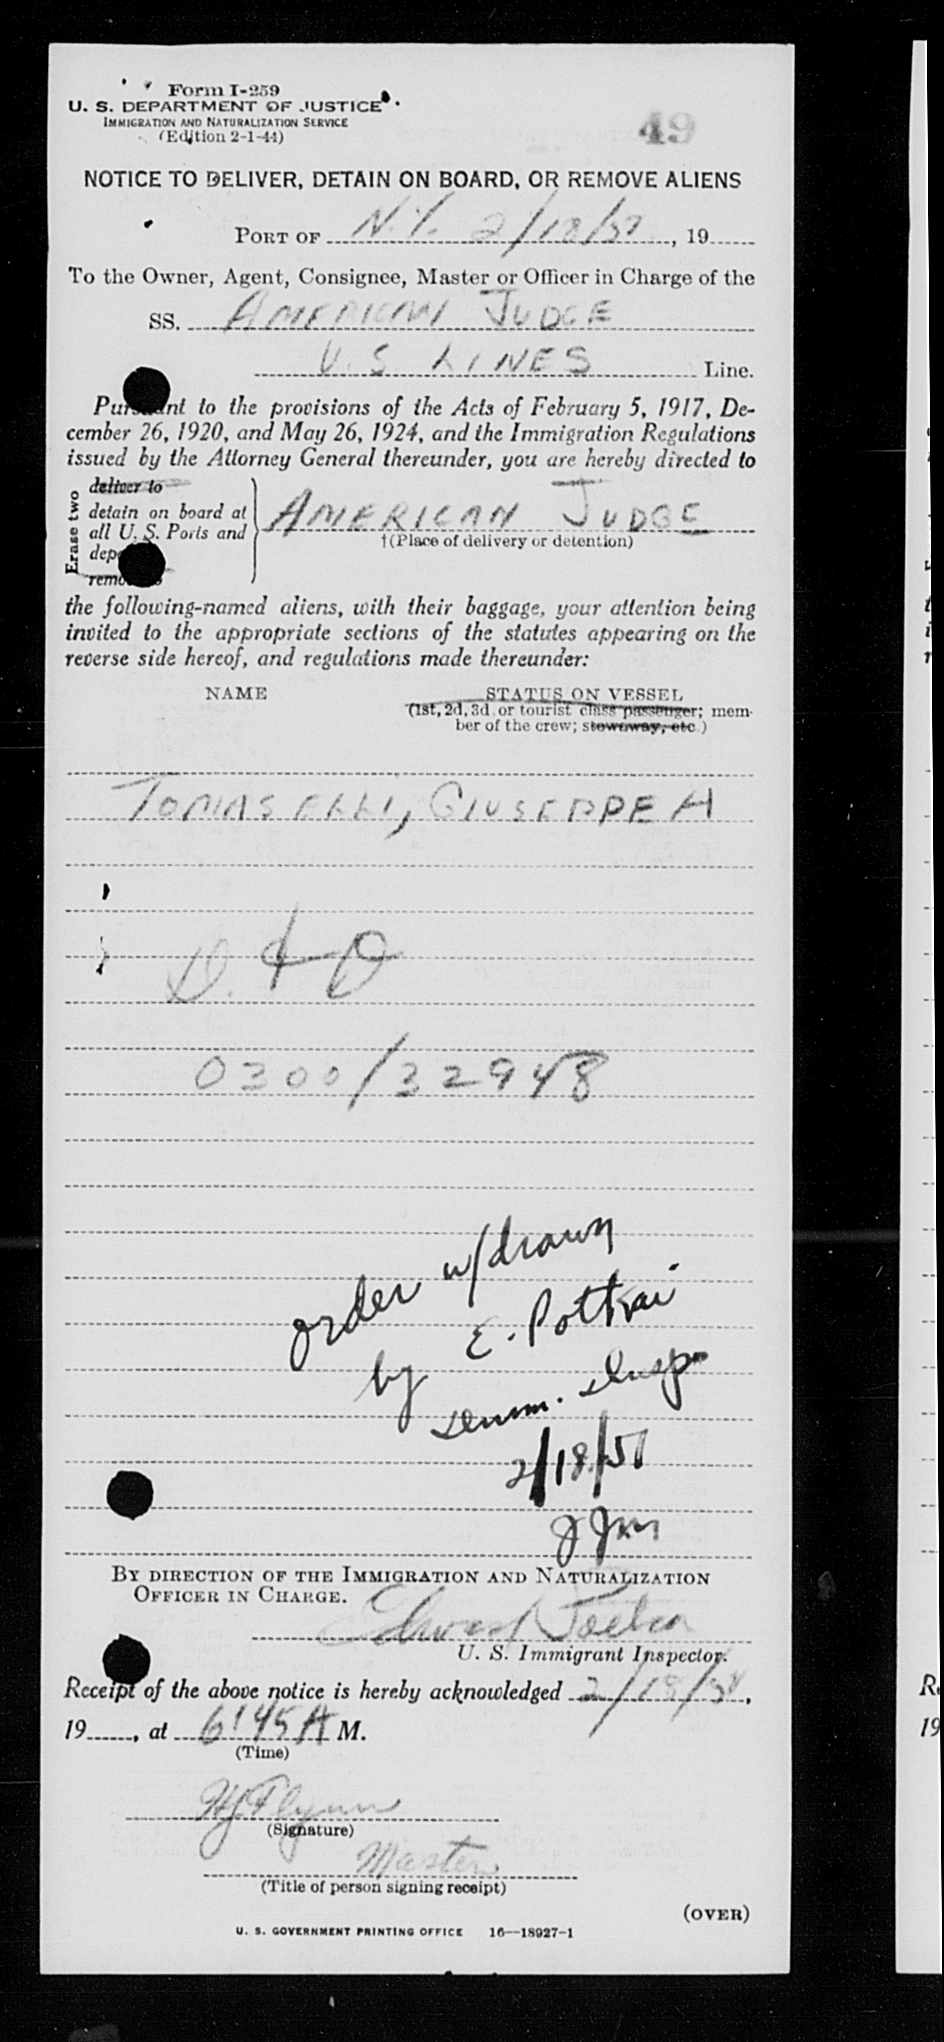 Form I-259
U. S. DEPARTMENT OF JUSTICE
IMMIGRATION AND NATURALIZATION SERVICE
(Edition 2-1-44)
49
NOTICE TO DELIVER, DETAIN ON BOARD, OR REMOVE ALIENS
PORT OF N.Y. 2/18/57, 19
To the Owner, Agent, Consignee, Master or Officer in Charge of the
SS. AMERICAN JUDGE
U.S LINES Line.
Pursuant to the provisions of the Acts of February 5, 1917, De-
cember 26, 1920, and May 26, 1924, and the Immigration Regulations
issued by the Attorney General thereunder, you are hereby directed to
Erase two
deliver to
detain on board at
all U. S. Ports and
AMERICAN JUDGE
†(Place of delivery or detention)
the following-named aliens, with their baggage, your attention being
invited to the appropriate sections of the statutes appearing on the
reverse side hereof, and regulations made thereunder:
NAME STATUS ON VESSEL
(1st, 2d, 3d or tourist class passenger; mem-
ber of the crew; stowaway, etc.)
TOMASELLI, GIUSEPPE A
D. & D
0300/32948
order w/drawn
by E. Potkai
Imm. Insp
2/18/57
BY DIRECTION OF THE IMMIGRATION AND NATURALIZATION
OFFICER IN CHARGE.
Edward
U. S. Immigrant Inspector.
Receipt of the above notice is hereby acknowledged 2/18/57,
19, at 6:45 A M.
(Time)
Flynn
(Signature)
Master
(Title of person signing receipt)
(OVER)
U. S. GOVERNMENT PRINTING OFFICE 16—18927-1